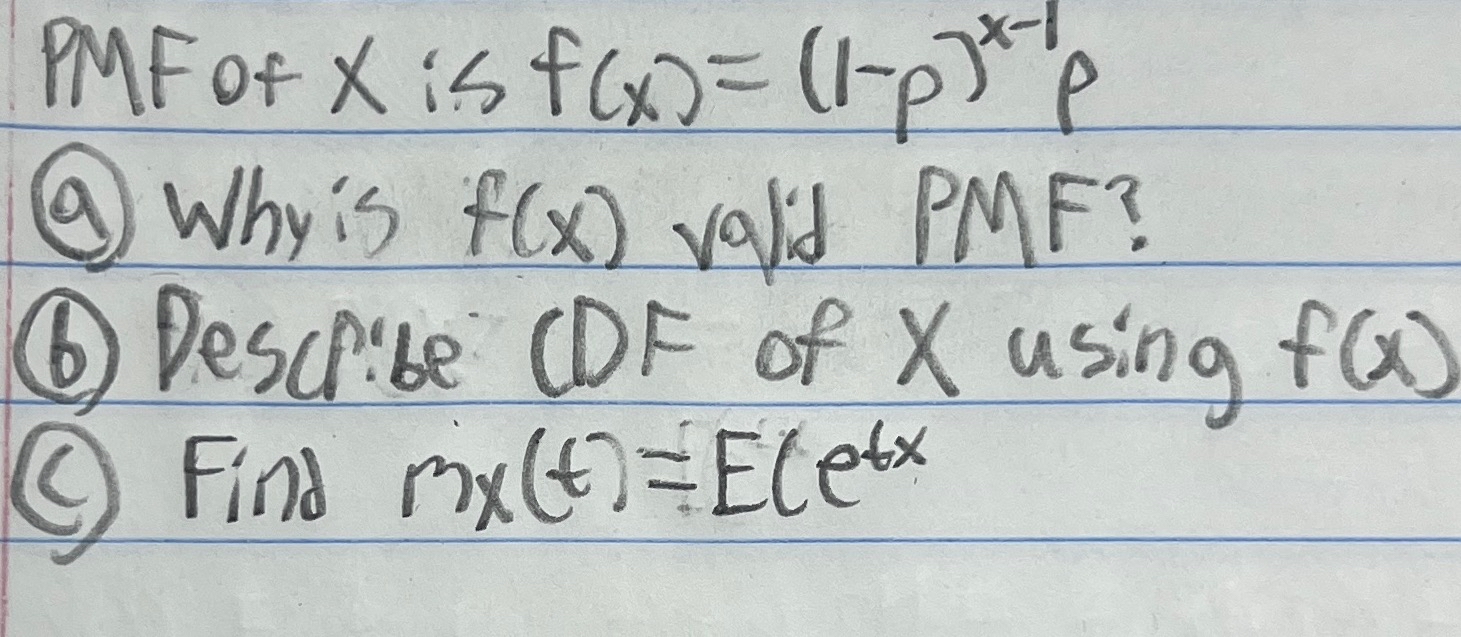 PMF of X is f(x) = (1-p)^{x-1} p
ⓐ Why is f(x) valid PMF?
ⓑ Describe CDF of X using f(x)
ⓒ Find m_X(t) = E(e^{tx}